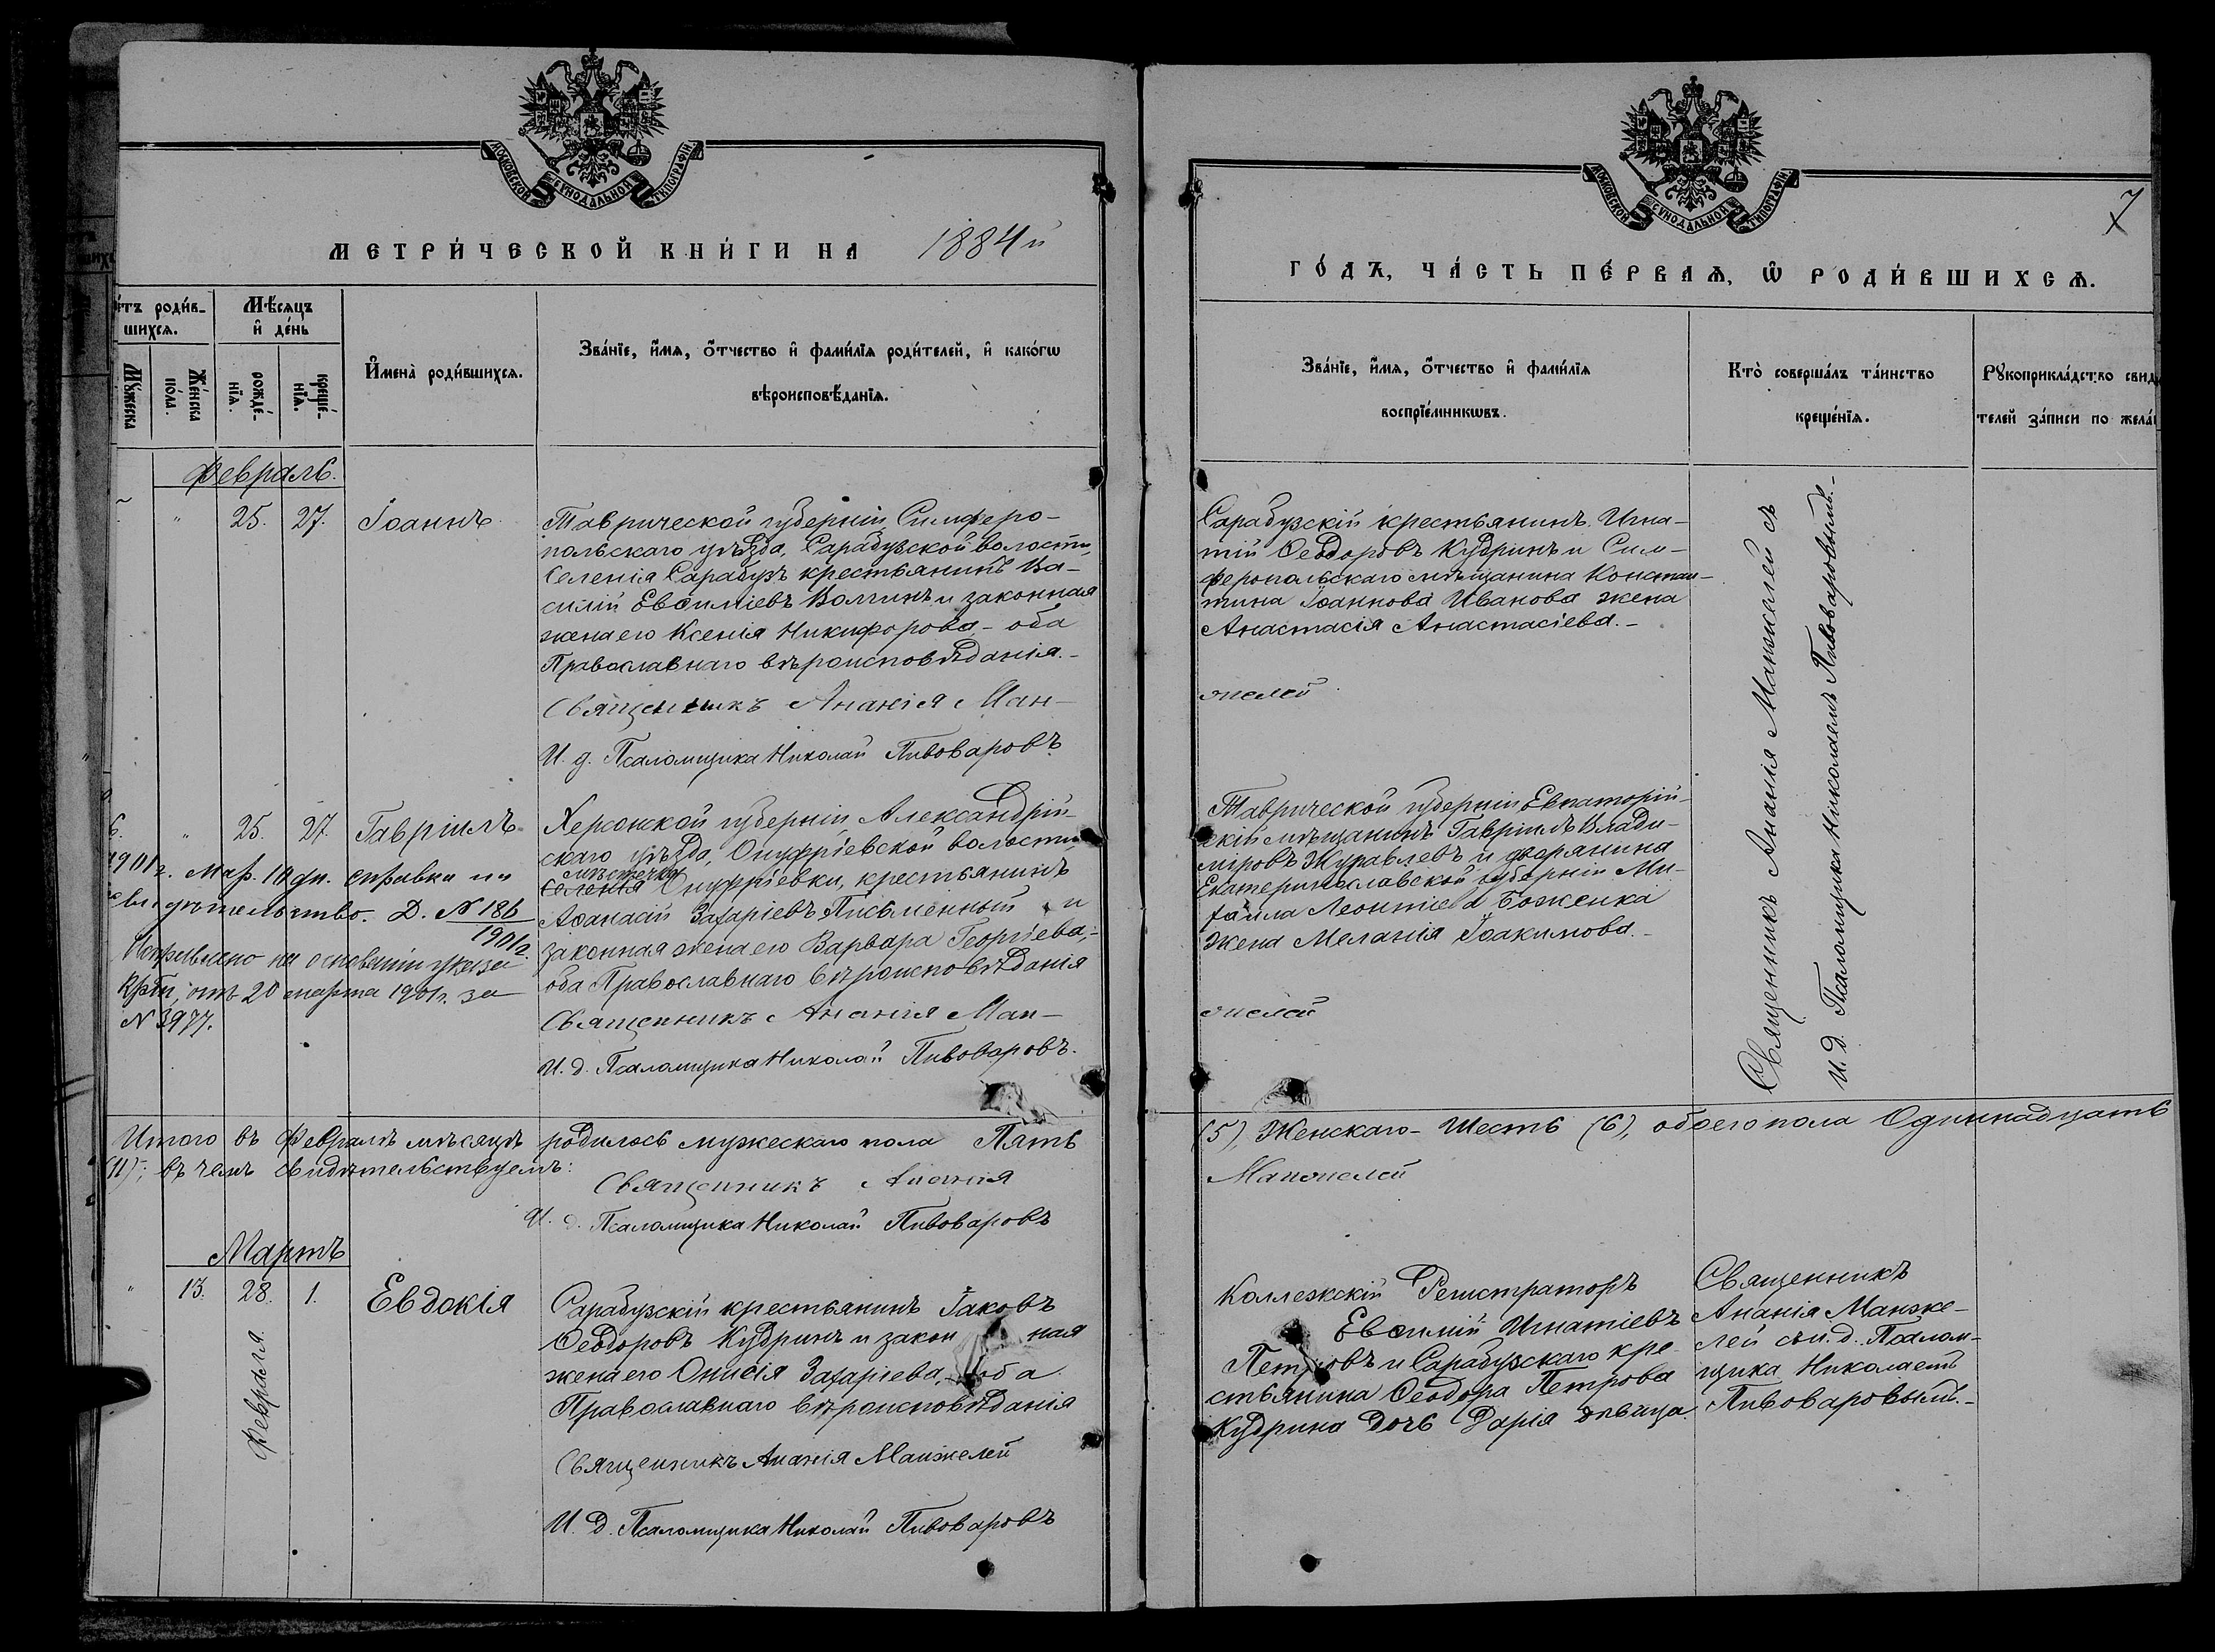 МОСКОВСКОЙ СѴНОДАЛЬНОЙ ТИПОГРАФІИ
МЕТРИ́ЧЕСКОЙ КНИ́ГИ НА 1884 й
родив-
шихся.
Мѣсяцъ
и день
Мужеска
Женска
пола.
рожде-
нія.
креще-
нія.
Имена родившихся.
Званіе, имя, отчество и фамилія родителей, и какогѡ
вѣроисповѣданія.
Февраль.
" 25. 27. Іоаннъ
Таврической губерніи Симферо-
польскаго уѣзда, Сарабузской волости,
Селенія Сарабузъ крестьянинъ Ва-
силій Евѳиміевъ Волгинъ и законная
жена его Ксенія Никифорова - оба
Православнаго вѣроисповѣданія.-
Священникъ Ананія Ман-
И. д. Псаломщика Николай Пивоваровъ
6. " 25. 27 Гавріилъ
Херсонской губерніи Александрій-
скаго уѣзда, Онуфріевской волости,
мѣстечка
Селенія Онуфріевки, крестьянинъ
Аѳанасій Захаріевъ Письменный и
законная жена его Варвара Георгіева,-
оба Православнаго вѣроисповѣданія
Священникъ Ананія Ман-
И. д. Псаломщика Николай Пивоваровъ.
1901 г. Мар. 10 дн. справки
свидѣтельство. Д. № 186
1901 г.
на основаніи указа
отъ 20 марта 1901 г. за
№ 3977.
Итого въ Февралѣ мѣсяцѣ родилось мужескаго пола Пять
(11); въ чемъ свидѣтельствуемъ:
Священникъ Ананія
И. д. Псаломщика Николай Пивоваровъ
Мартъ
" 13. 28. 1. Евдокія
Февраля
Сарабузскій крестьянинъ Іаковъ
Ѳеодоровъ Кудринъ и закон ная
жена его Онисія Захаріева, оба
Православнаго вѣроисповѣданія
Священникъ Ананія Манжелей
И. Д. Псаломщика Николай Пивоваровъ
МОСКОВСКОЙ СѴНОДАЛЬНОЙ ТИПОГРАФІИ
7
ГО́ДЪ, ЧА́СТЬ ПЕ́РВАѦ, Ѡ РОДИ́ВШИХСѦ.
Званіе, имя, отчество и фамилія
воспріемникѡвъ.
Кто совершалъ таинство
крещенія.
Рукоприкладство свид
телей записи по жела
Сарабузскій крестьянинъ Игна-
тій Ѳеодоровъ Кудринъ и Сим-
феропольскаго мѣщанина Констан-
тина Іоаннова Иванова жена
Анастасія Анастасіева.-
желей
Таврической губерніи Евпаторій-
скій мѣщанинъ Гавріилъ Влади-
міровъ Журавлевъ и дворянина
Екатеринославской губерніи Ми-
хаила Леонтіева Боженка
жена Меланія Іоакимова.-
желей
Священникъ Ананія Манжелей съ
И. Д. Псаломщика Николаемъ Пивоваровымъ.-
(5), Женскаго - Шесть (6), обоего пола Одиннадцать
Манжелей
Коллежскій Регистраторъ
Евѳимій Игнатіевъ
Петровъ и Сарабузскаго кре-
стьянина Ѳеодора Петрова
Кудрина дочь Дарія дѣвица.
Священникъ
Ананія Манже-
лей съ и. д. Псалом-
щика Николаемъ
Пивоваровымъ.-